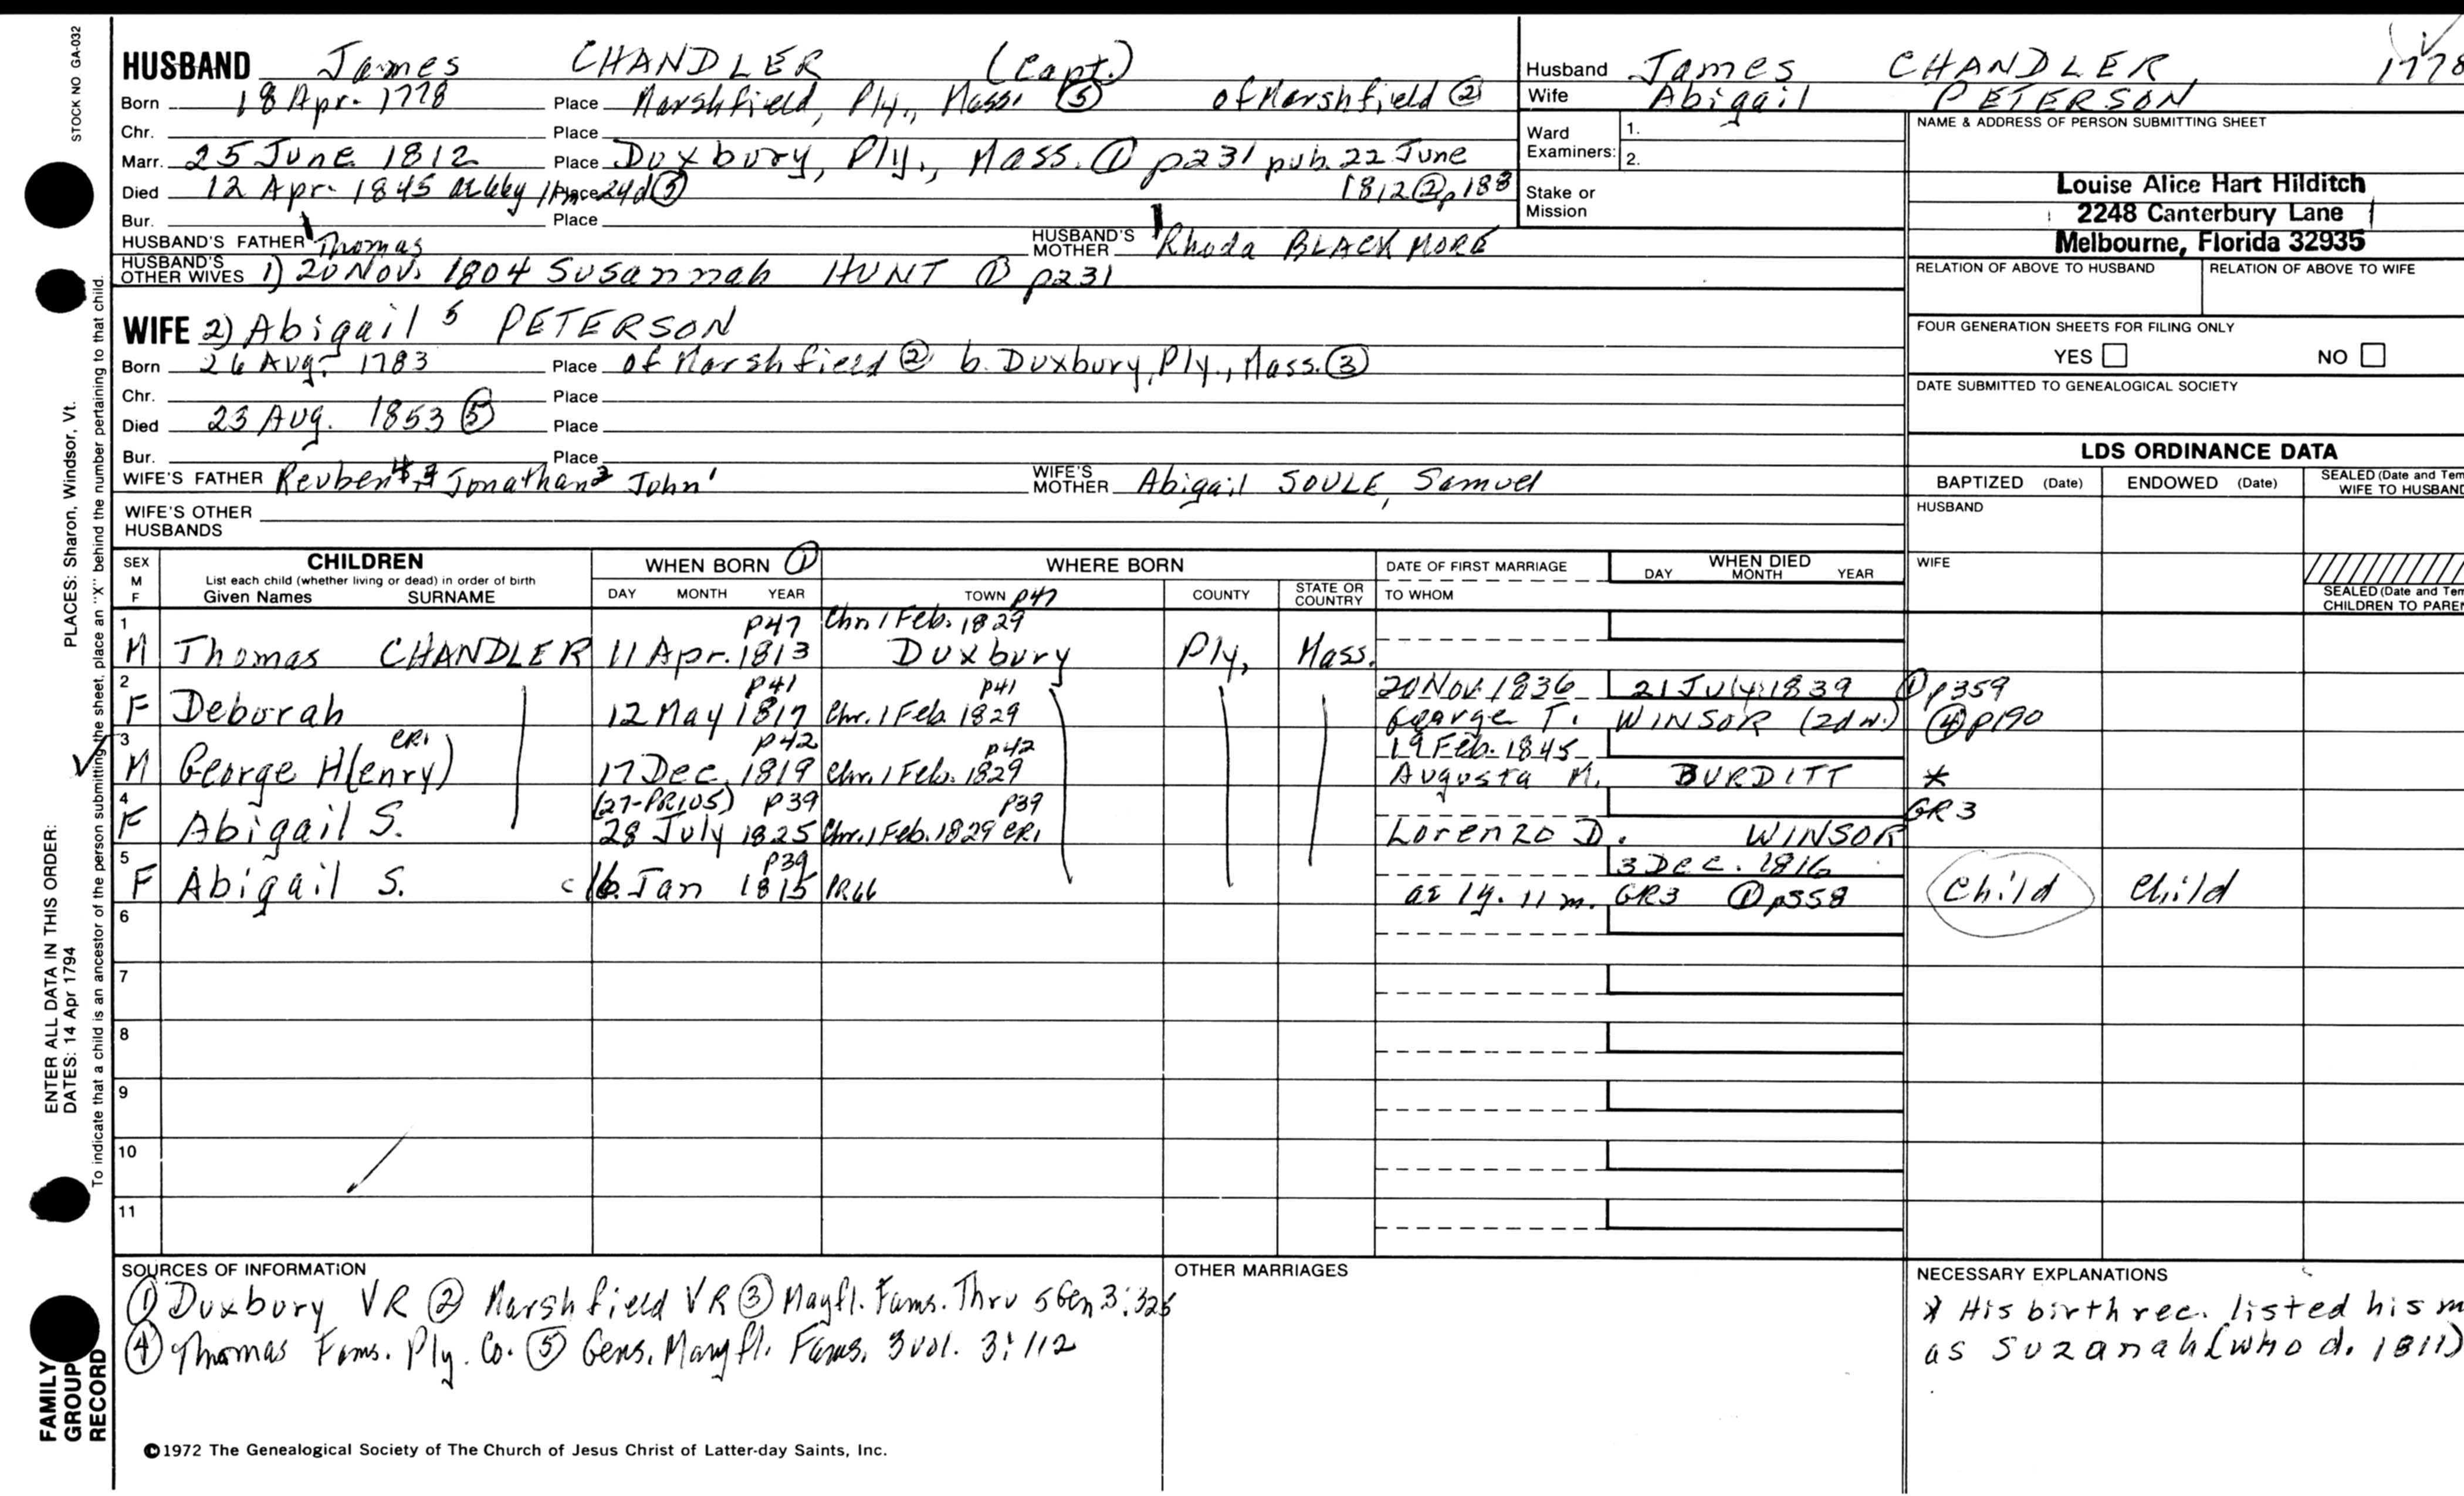 STOCK NO GA-032
HUSBAND James CHANDLER (Capt.)
Born 18 Apr. 1778 Place Marshfield, Ply., Mass. ⑤ of Marshfield ②
Chr. Place
Marr. 25 June 1812 Place Duxbury, Ply., Mass. ① p231 pub. 22 June
1812 ② p188
Died 12 Apr. 1845 Place 24d ⑤
Bur. Place
HUSBAND'S FATHER Thomas HUSBAND'S MOTHER Rhoda BLACKMORE
HUSBAND'S OTHER WIVES 1) 20 Nov. 1804 Susannah HUNT ① p231
WIFE 2) Abigail 5 PETERSON
Born 26 Aug. 1783 Place of Marshfield ② b. Duxbury, Ply., Mass. ③
Chr. Place
Died 23 Aug. 1853 ⑤ Place
Bur. Place
WIFE'S FATHER Reuben Jonathan John WIFE'S MOTHER Abigail SOULE, Samuel
WIFE'S OTHER HUSBANDS
Husband James CHANDLER, 1778
Wife Abigail PETERSON
Ward Examiners: 1.
2.
Stake or Mission
NAME & ADDRESS OF PERSON SUBMITTING SHEET
Louise Alice Hart Hilditch
2248 Canterbury Lane
Melbourne, Florida 32935
RELATION OF ABOVE TO HUSBAND RELATION OF ABOVE TO WIFE
FOUR GENERATION SHEETS FOR FILING ONLY
YES NO
DATE SUBMITTED TO GENEALOGICAL SOCIETY
LDS ORDINANCE DATA
BAPTIZED (Date) ENDOWED (Date) SEALED (Date and Tem
WIFE TO HUSBAND
HUSBAND
WIFE
SEALED (Date and Tem
CHILDREN TO PAREN
SEX M F CHILDREN WHEN BORN ① WHERE BORN DATE OF FIRST MARRIAGE WHEN DIED
List each child (whether living or dead) in order of birth
Given Names SURNAME DAY MONTH YEAR TOWN p47 COUNTY STATE OR COUNTRY TO WHOM DAY MONTH YEAR
1 p47 Chr 1 Feb. 1829
M Thomas CHANDLER 11 Apr. 1813 Duxbury Ply, Mass.
2 p41 p41 20 Nov. 1836 21 July 1839 ① p359
F Deborah 12 May 1817 Chr. 1 Feb. 1829 George T. WINSOR (2d w.) ④ p190
3 CR1 p42 p42 19 Feb. 1845
M George H(enry) 17 Dec. 1819 Chr. 1 Feb. 1829 Augusta M. BURDITT *
4 (27-PR105) p39 p39 GR3
F Abigail S. 28 July 1825 Chr. 1 Feb. 1829 CR1 Lorenzo D. WINSOR
5 p39 3 Dec. 1816
F Abigail S. 16 Jan 1815 PR66 ae 1y. 11 m. GR3 ① p358 Child Child
6
7
8
9
10
11
SOURCES OF INFORMATION
① Duxbury VR ② Marshfield VR ③ Mayfl. Fams. Thru 5 Gen 3:325
④ Thomas Fams. Ply. Co. ⑤ Gens. Mayfl. Fams. 3 vol. 3:112
OTHER MARRIAGES
NECESSARY EXPLANATIONS
* His birth rec. listed his m
as Suzanah (who d. 1811)
©1972 The Genealogical Society of The Church of Jesus Christ of Latter-day Saints, Inc.
PLACES: Sharon, Windsor, Vt.
ENTER ALL DATA IN THIS ORDER:
DATES: 14 Apr 1794
To indicate that a child is an ancestor of the person submitting the sheet, place an "X" behind the number pertaining to that child.
FAMILY
GROUP
RECORD